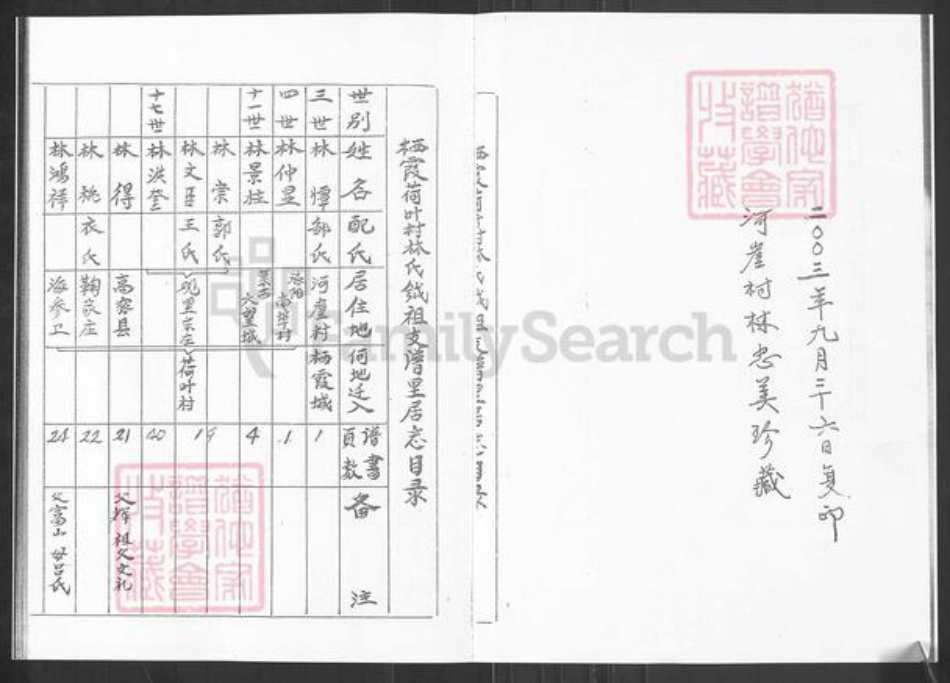 二〇〇三年九月二十六日复印
河崖村林忠美珍藏
栖霞荷叶村林氏钺祖支谱里居志目录
世别 姓名 配氏 居住地 何地迁入 谱书页数 备注
三世 林 郭氏 河崖村 栖霞城 1
四世 林仲 海阳 南 村 1
十一世 林景柱 莱西 大望城 4
林棠 郭氏
林文臣 王氏 荷叶村 19
十七世 林洪奎 20
林得 高密县 21 父 祖父文礼
林桃 衣氏 鞠家庄 22
林鸿祥 海参卫 24 父富山 母吕氏
譜學會
收藏
譜學會
收藏
FamilySearch